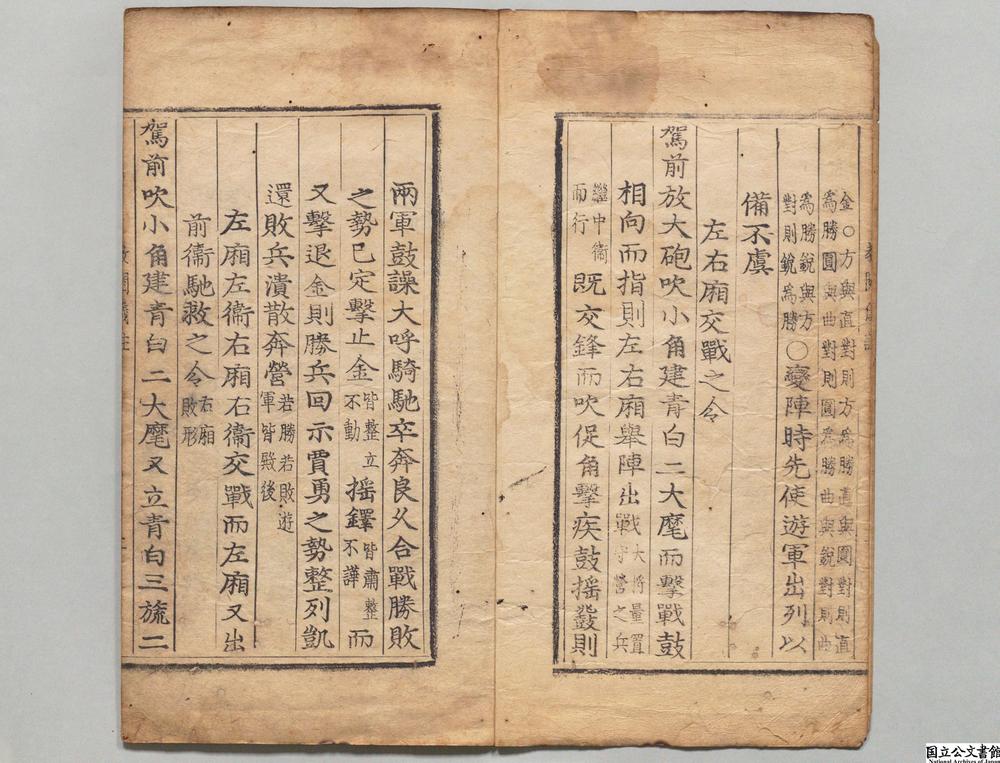 金○方與直對則方爲勝直與圓對則直
爲勝圓與曲對則圓爲勝曲與銳對則曲
爲勝銳與方
對則銳爲勝○變陣時先使遊軍出列以
備不虞
左右廂交戰之令
駕前放大砲吹小角建靑白二大麾而擊戰鼓
相向而指則左右廂舉陣出戰大將量置
守營之兵
繼中衞
而行旣交鋒而吹促角擊疾鼓搖鼗則
兩軍鼓譟大呼騎馳卒奔良久合戰勝敗
之勢已定擊止金皆整立
不動搖鐸皆肅整
不譁而
又擊退金則勝兵回示賈勇之勢整列凱
還敗兵潰散奔營若勝若敗遊
軍皆殿後
左廂左衞右廂右衞交戰而左廂又出
前衞馳救之令右廂
敗形
駕前吹小角建靑白二大麾又立靑白三旒二
国立公文書館
National Archives of Japan